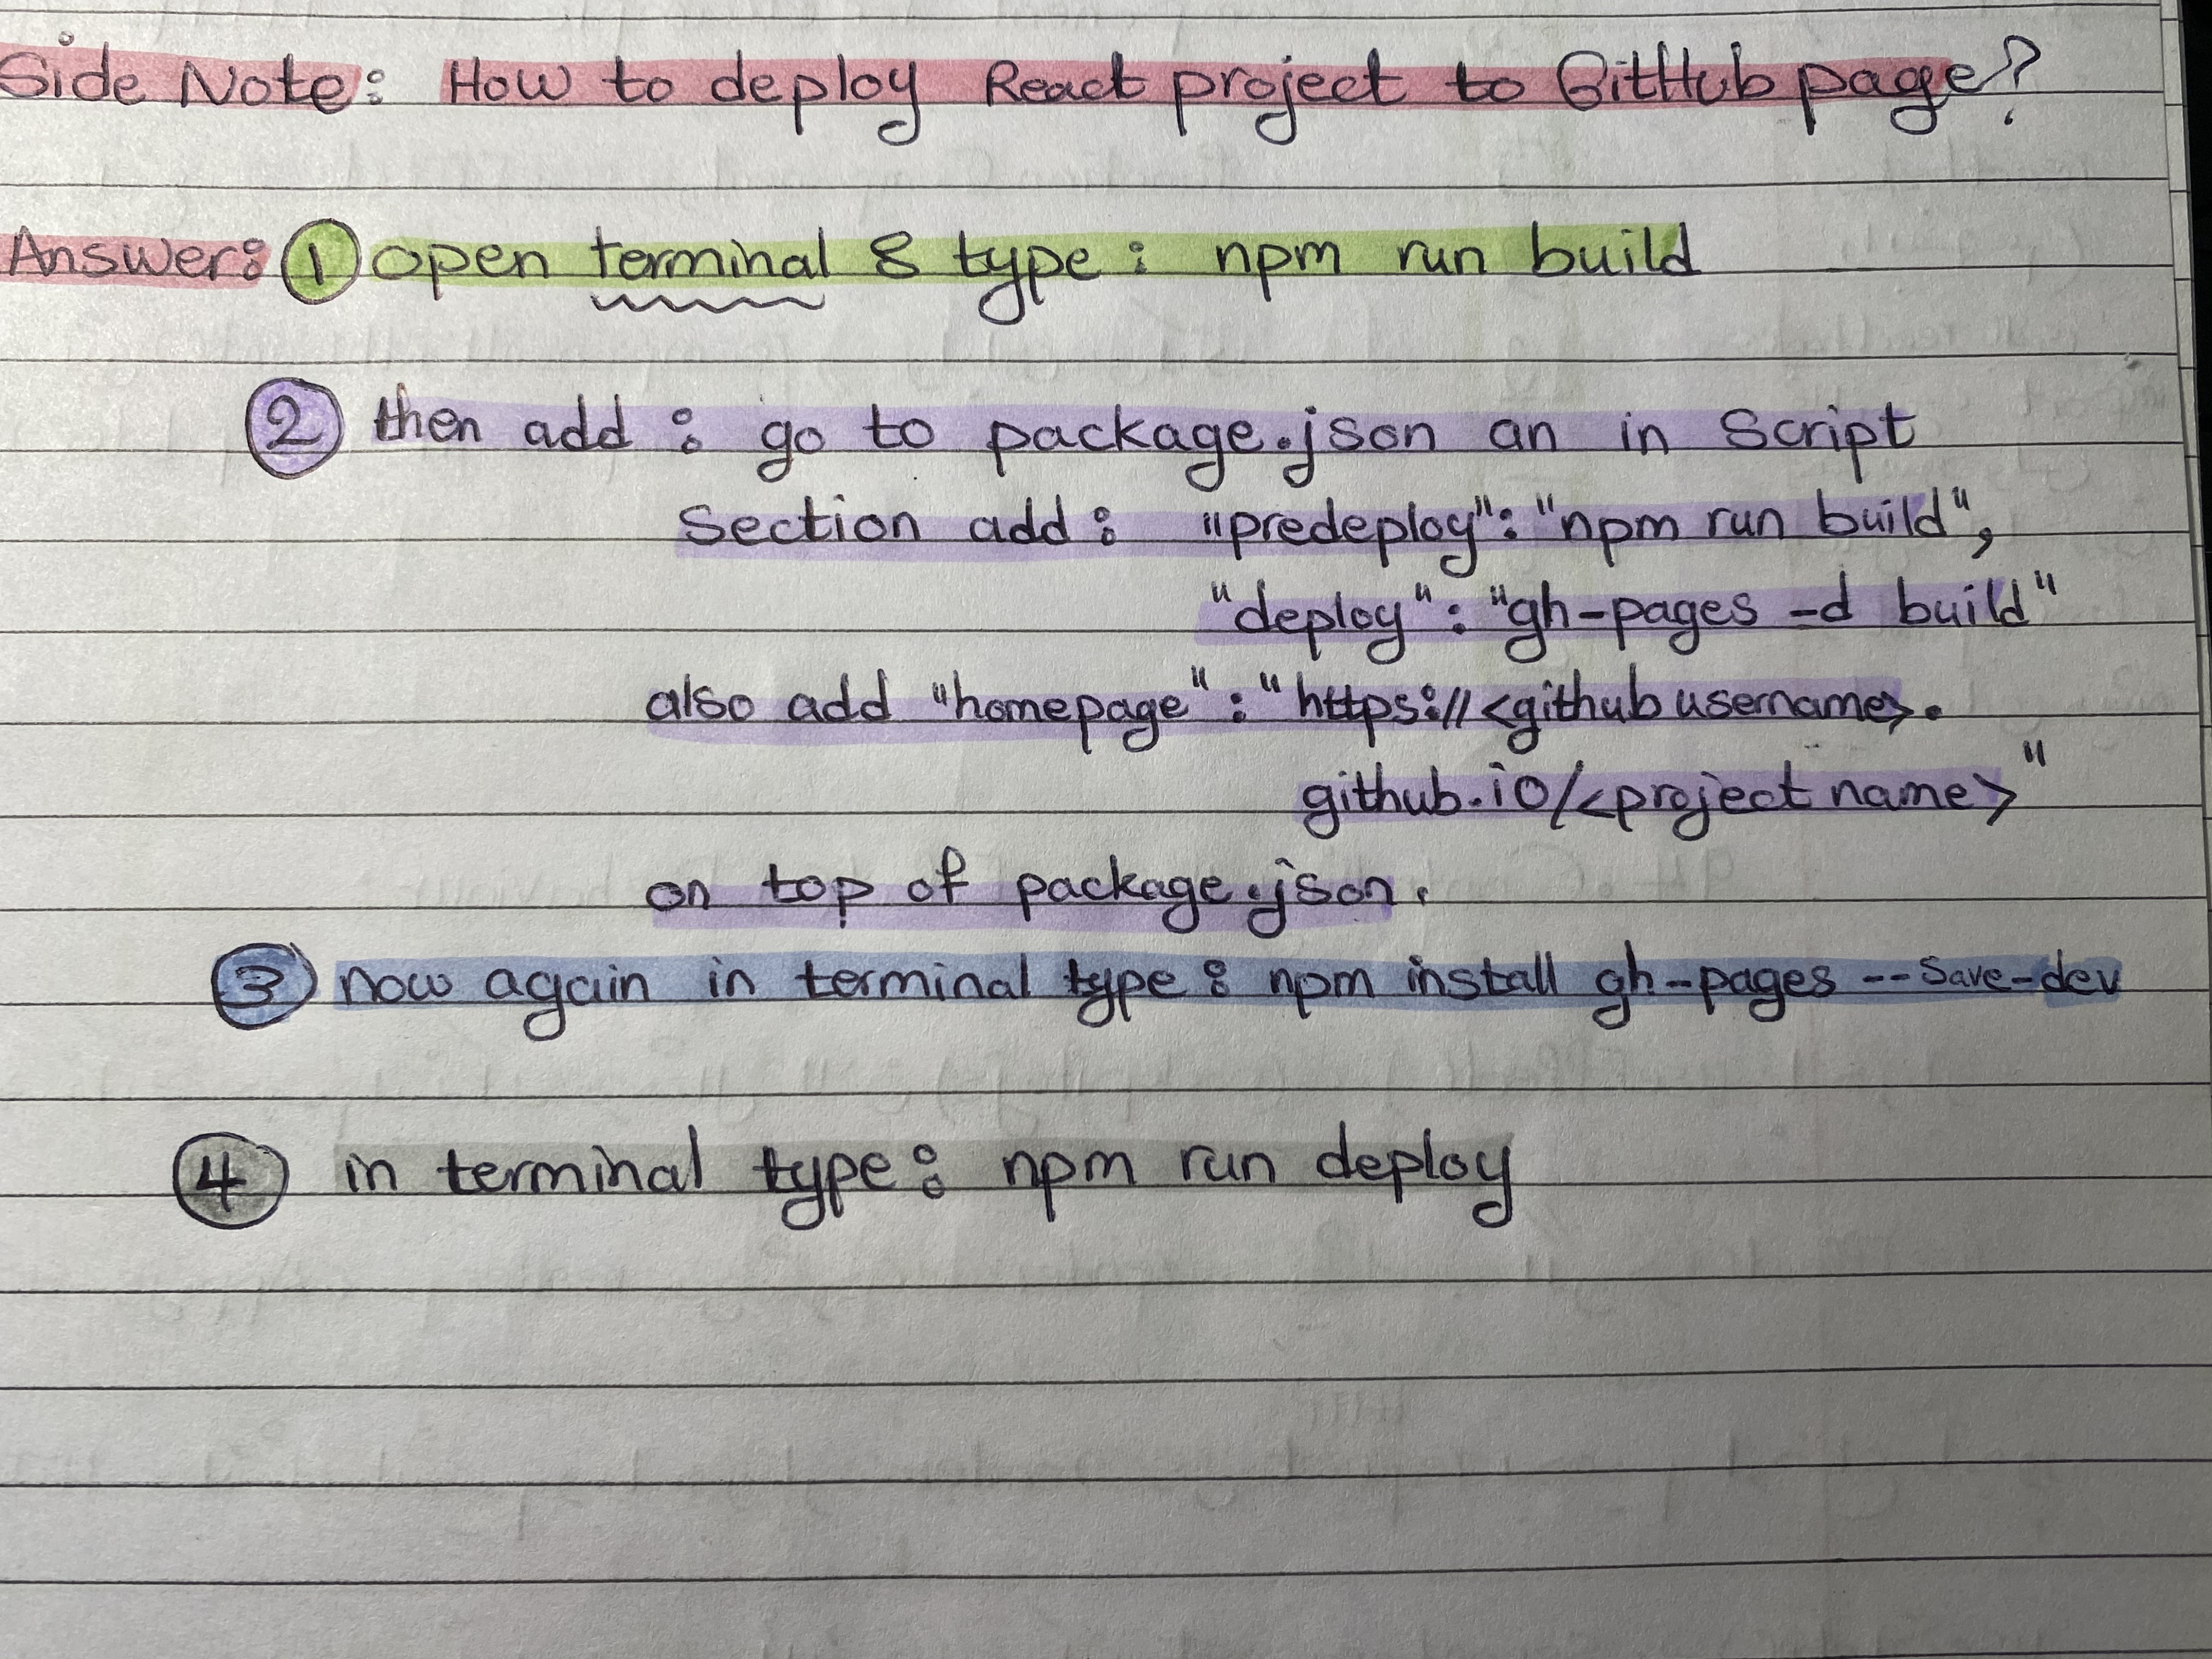 Side Note: How to deploy React project to GitHub page?
Answer: 1 open terminal & type: npm run build
2 then add: go to package.json an in Script
Section add: "predeploy": "npm run build",
"deploy": "gh-pages -d build"
also add "homepage": "https://<github username>.
github.io/<project name>"
on top of package.json.
3 now again in terminal type: npm install gh-pages --save-dev
4 in terminal type: npm run deploy